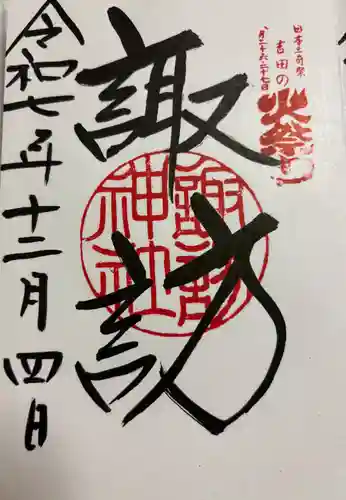 日本三奇祭
吉田の
火祭り
八月二十六、二十七日
諏訪
諏訪
神社
令和七年十二月四日